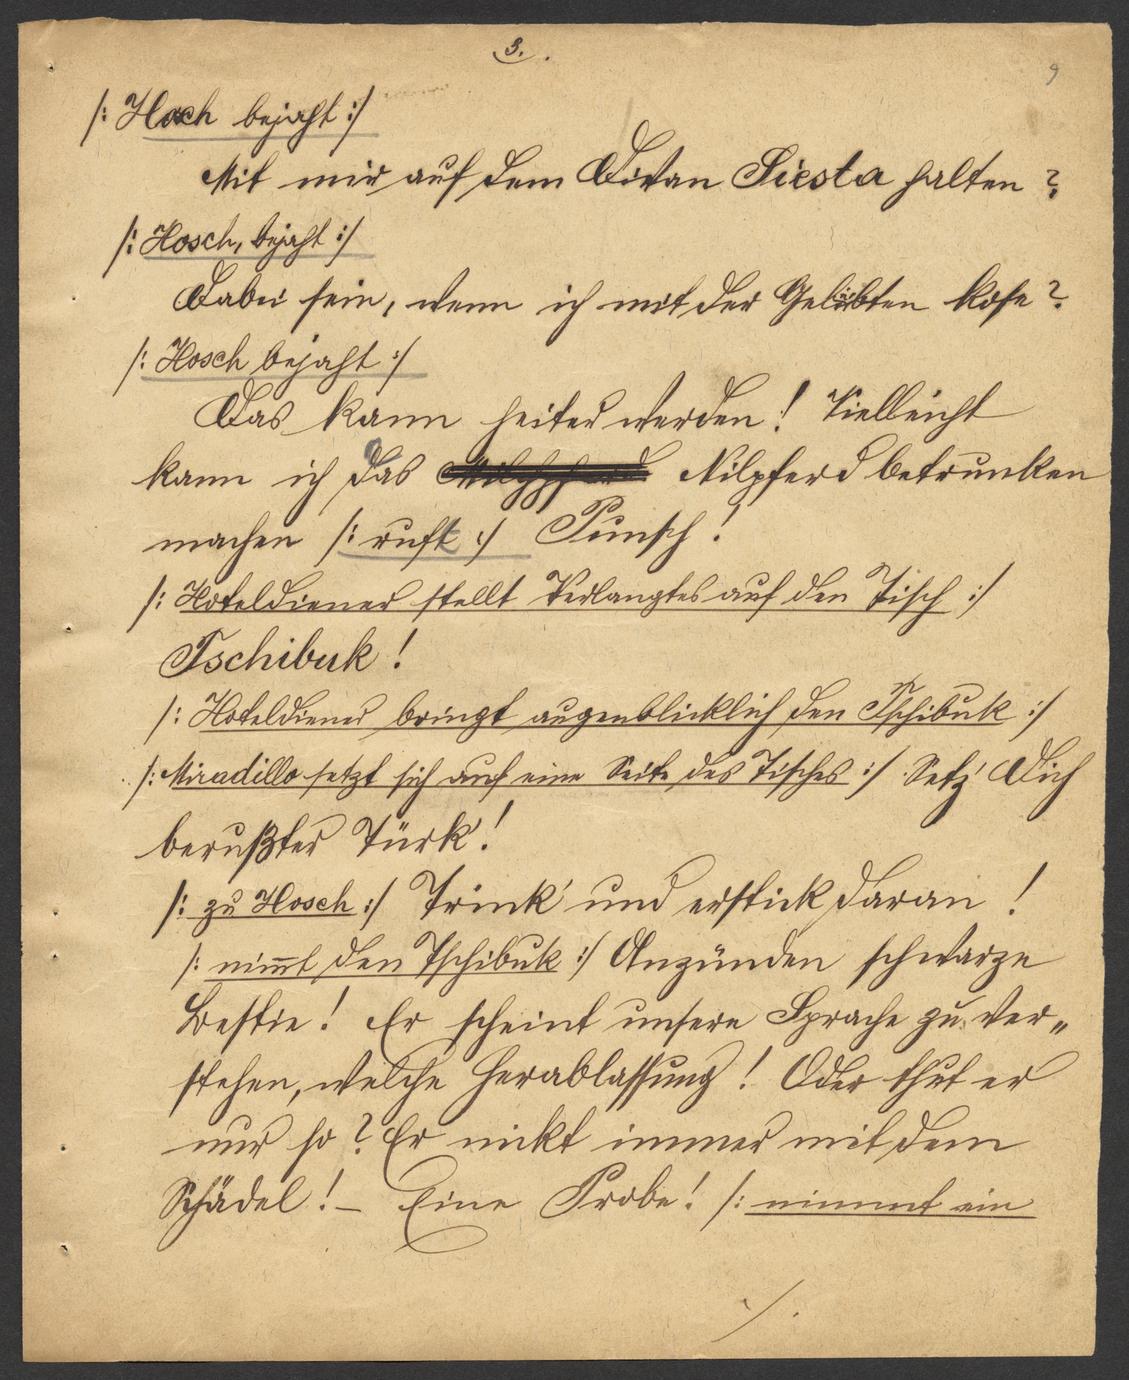 3.
9
/: Hosch bejaht :/
Mit mir auf dem Divan Siesta halten?
/: Hosch, bejaht :/
Dabei sein, wenn ich mit der Geliebten kose?
/: Hosch bejaht :/
Das kann heiter werden! Vielleicht
kann ich das Nilpferd betrunken
machen /: ruft :/ Punsch!
/: Hoteldiener stellt Verlangtes auf den Tisch :/
Tschibuk!
/: Hoteldiener bringt augenblicklich den Tschibuk :/
/: Miradillo setzt sich auf eine Seite des Tisches :/ Setz' Dich
berußter Türk'!
/: zu Hosch :/ Trink' und erstick daran!
/: nim̅t den Tschibuk :/ Anzünden schwarze
Bestie! Er scheint unsere Sprache zu ver„
stehen, welche Herablassung! Oder thut er
nur so? Er nickt immer mit dem
Schädel! – Eine Probe! /: nimmt ein
./.